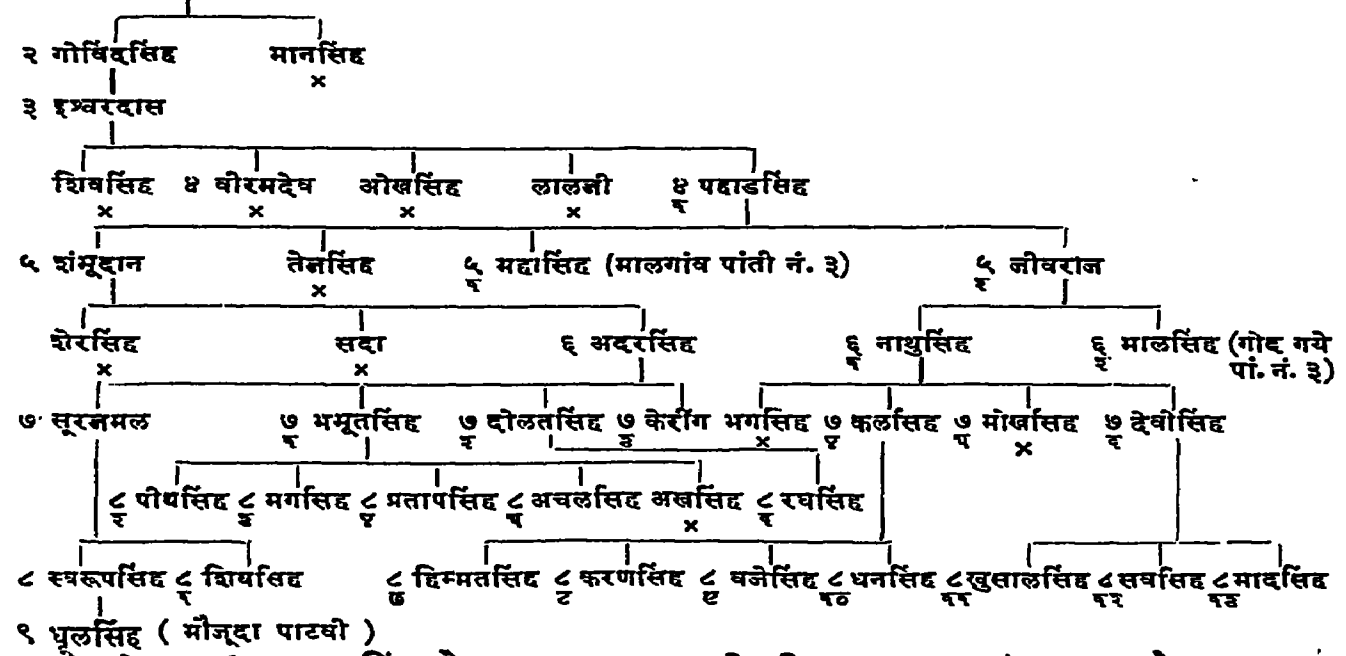 २ गोविंदसिंह मानसिंह
×
३ इश्वरदास
शिवसिंह ४ वीरमदेव ओखसिंह लालजी ४/१ पहाडसिंह
× × × ×
५ शंभूदान तेजसिंह ५/१ महासिंह (मालगांव पांती नं. ३) ५/२ जीवराज
×
शेरसिंह सदा ६ अदरसिंह ६/१ नाथुसिंह ६/२ मालसिंह (गोद गये
× × पां. नं. ३)
७ सूरजमल ७/१ भभूतसिंह ७/२ दोलतसिंह ७/३ केरींग भगसिंह ७/४ कलसिंह ७/५ मोखसिंह ७/६ देवीसिंह
× ×
८/२ पीथसिंह ८/३ मगसिंह ८/४ प्रतापसिंह ८/५ अचलसिंह अखसिंह ८/६ रघसिंह
×
८ स्वरूपसिंह ८/१ शिवसिंह ८/७ हिम्मतसिंह ८/८ करणसिंह ८/९ वजेसिंह ८/१० धनसिंह ८/११ खुसालसिंह ८/१२ सवसिंह ८/१३ मादसिंह
९ धूलसिंह ( मौजूदा पाटवी )